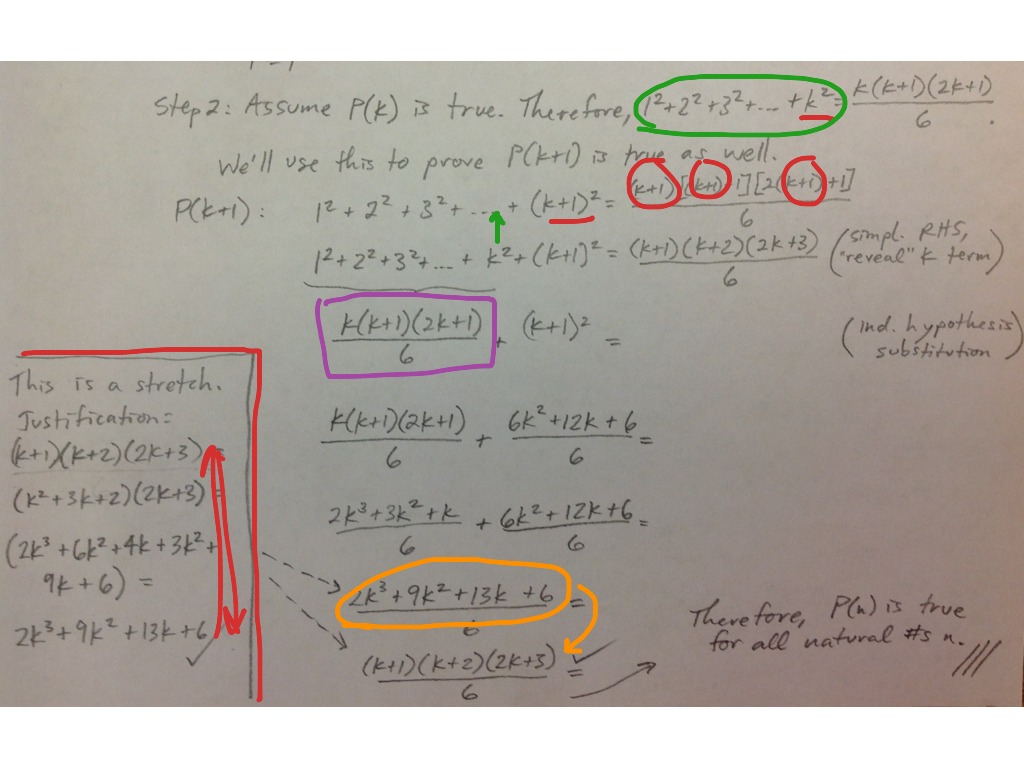 Step 2: Assume P(k) is true. Therefore, 1² + 2² + 3² + ... + k² = k(k+1)(2k+1) / 6 .
We'll use this to prove P(k+1) is true as well.
P(k+1): 1² + 2² + 3² + ... + (k+1)² = (k+1)[(k+1)+1][2(k+1)+1] / 6
1² + 2² + 3² + ... + k² + (k+1)² = (k+1)(k+2)(2k+3) / 6 (simpl. RHS, "reveal" k term)
k(k+1)(2k+1) / 6 + (k+1)² = (ind. hypothesis substitution)
k(k+1)(2k+1) / 6 + 6k²+12k+6 / 6 =
2k³+3k²+k / 6 + 6k²+12k+6 / 6 =
2k³+9k²+13k+6 / 6 =
(k+1)(k+2)(2k+3) / 6 = ✓
This is a stretch.
Justification:
(k+1)(k+2)(2k+3) =
(k²+3k+2)(2k+3) =
(2k³+6k²+4k+3k²+
9k+6) =
2k³+9k²+13k+6 ✓
Therefore, P(n) is true
for all natural #s n. ///